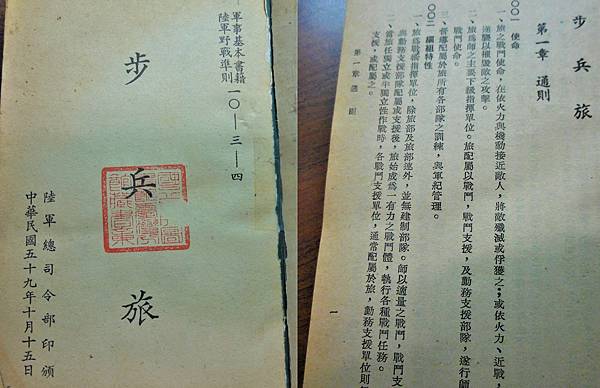 軍事基本書籍
陸軍野戰準則
一〇—三—四
步兵旅
陸軍總司令部印頒
中華民國五十九年十月十五日
步兵旅
第一章 通則
〇〇一 使命
一、旅之戰鬥使命，在依火力與機動接近敵人，將敵殲滅或俘獲之；或依火力、近戰，
逆襲以摧毀敵之攻擊。
二、旅爲師之主要下級指揮單位。旅配屬以戰鬥，戰鬥支援，及勤務支援部隊，遂行師
戰鬥使命。
三、督導配屬於旅所有各部隊之訓練，與軍紀管理。
〇〇二 編組特性
一、旅爲戰術指揮單位，除旅部及旅部連外，並無建制部隊。師以適量之戰鬥，戰鬥支
與勤務支援部隊配屬或支援後，旅始成爲一有力之戰鬥體，執行各種戰鬥任務。
二、當旅任獨立或半獨立性作戰時，各戰鬥支援單位，通常配屬於旅，勤務支援單位則
支援，或配屬之。
第一章 通則
一